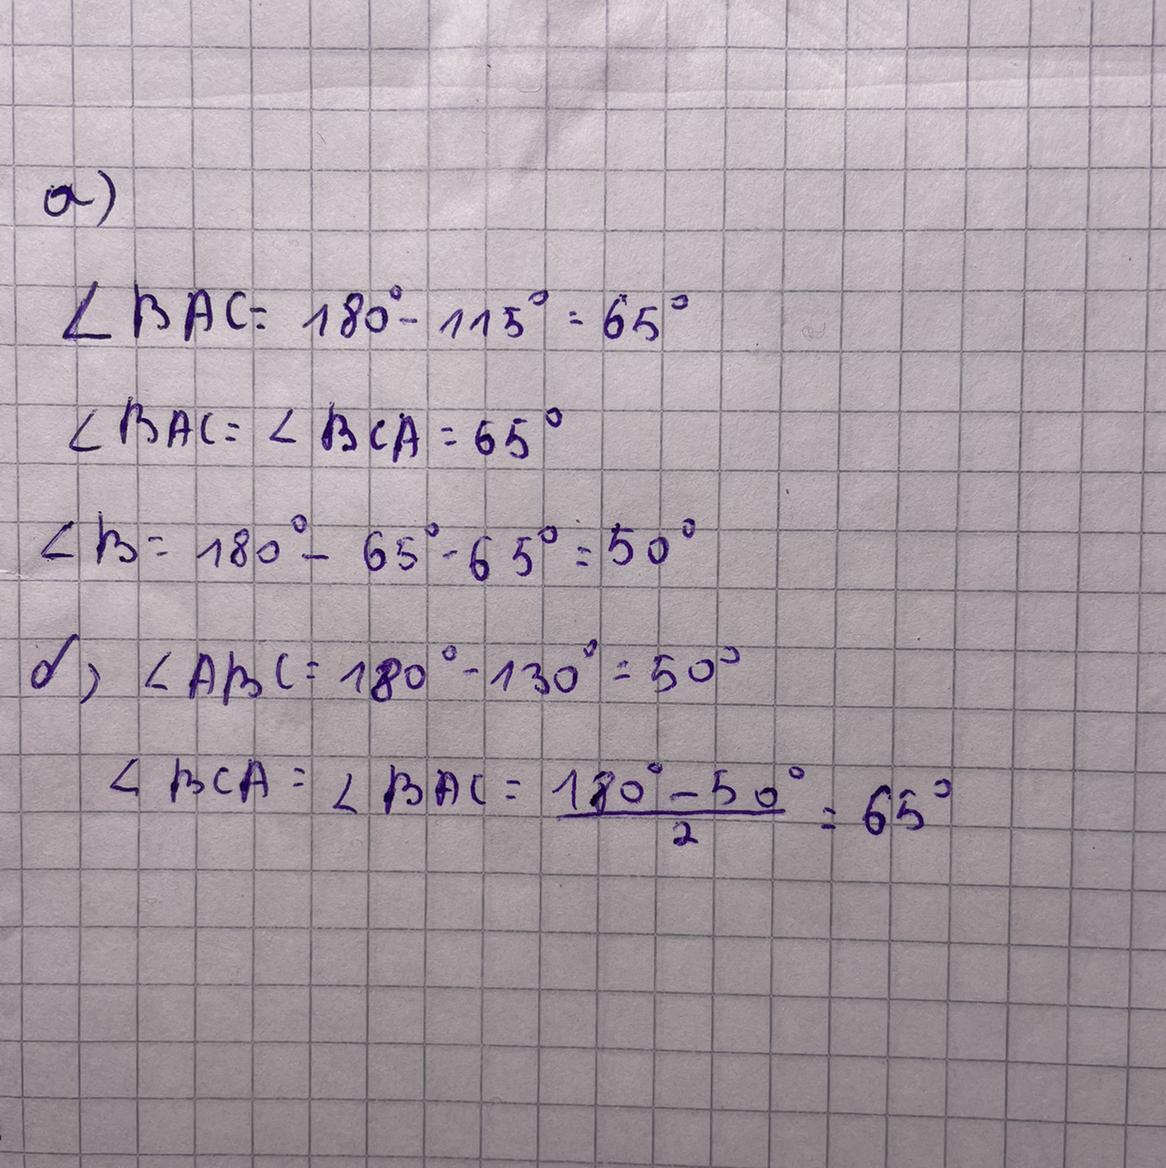 а)
∠BAC = 180° - 115° = 65°
∠BAC = ∠BCA = 65°
∠B = 180° - 65° - 65° = 50°
б) ∠ABC = 180° - 130° = 50°
∠BCA = ∠BAC = (180° - 50°)/2 = 65°